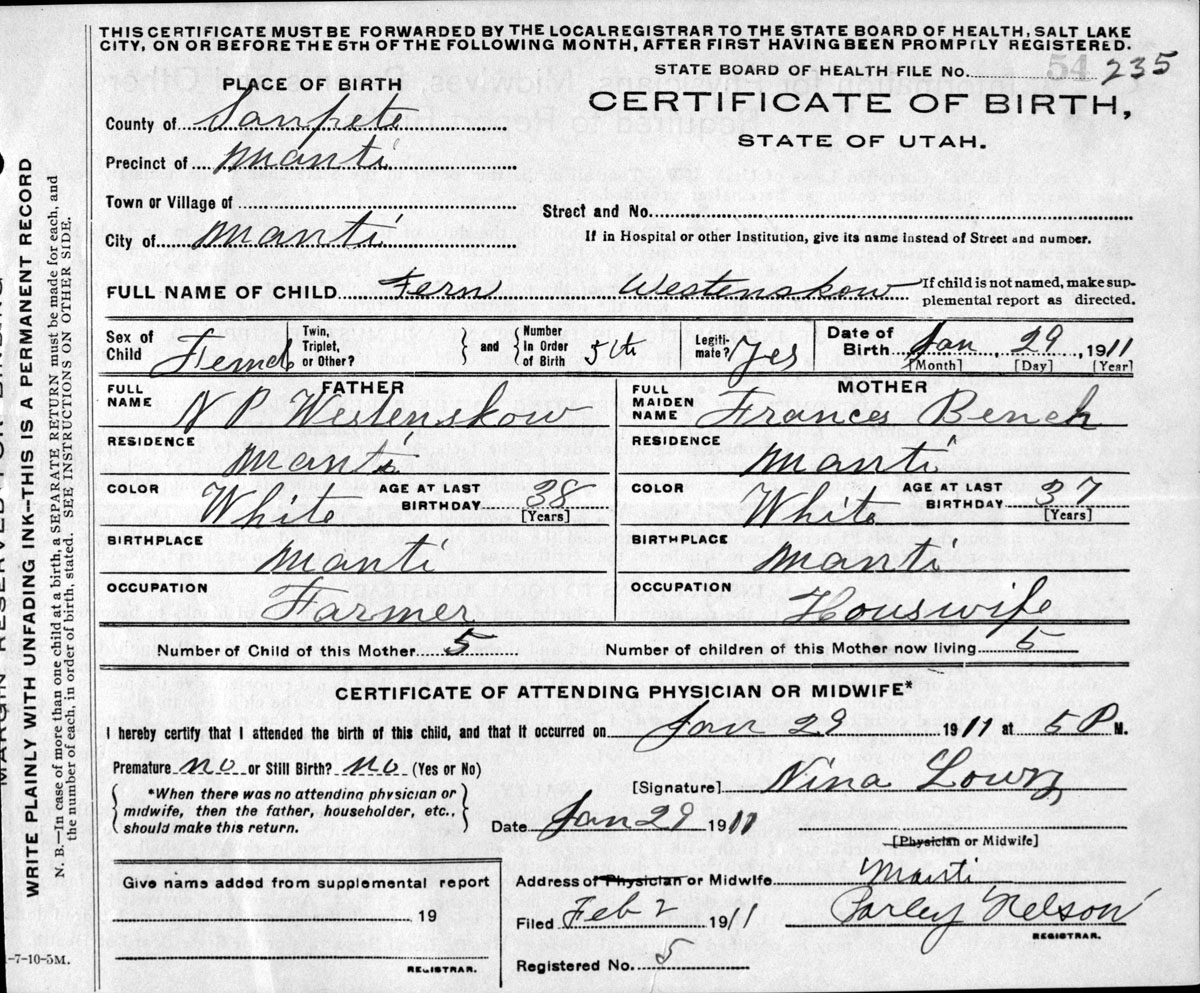 THIS CERTIFICATE MUST BE FORWARDED BY THE LOCAL REGISTRAR TO THE STATE BOARD OF HEALTH, SALT LAKE
CITY, ON OR BEFORE THE 5TH OF THE FOLLOWING MONTH, AFTER FIRST HAVING BEEN PROMPTLY REGISTERED.
STATE BOARD OF HEALTH FILE No. 54 235
PLACE OF BIRTH
CERTIFICATE OF BIRTH,
STATE OF UTAH.
County of Sanpete
Precinct of Manti
Town or Village of
Street and No.
City of Manti
If in Hospital or other Institution, give its name instead of Street and number.
FULL NAME OF CHILD Fern Westenskow If child is not named, make sup-
plemental report as directed.
Sex of Child Femal Twin, Triplet, or Other? and Number in Order of Birth 5th Legiti-mate? Yes Date of Birth Jan 29, 1911
[Month] [Day] [Year]
FATHER
MOTHER
FULL NAME N P Westenskow
FULL MAIDEN NAME Frances Bench
RESIDENCE Manti
RESIDENCE Manti
COLOR White AGE AT LAST BIRTHDAY 38 [Years]
COLOR White AGE AT LAST BIRTHDAY 37 [Years]
BIRTHPLACE Manti
BIRTHPLACE Manti
OCCUPATION Farmer
OCCUPATION Houswife
Number of Child of this Mother 5 Number of children of this Mother now living 5
CERTIFICATE OF ATTENDING PHYSICIAN OR MIDWIFE*
I hereby certify that I attended the birth of this child, and that it occurred on Jan 29 1911 at 5 P M.
Premature no or Still Birth? no (Yes or No)
[Signature] Nina Lowry
*When there was no attending physician or
midwife, then the father, householder, etc.,
should make this return.
Date Jan 29 1911
[Physician or Midwife]
Give name added from supplemental report
19
REGISTRAR.
Address of Physician or Midwife Manti
Filed Feb 2 1911 Parley Nelson
REGISTRAR.
Registered No. 5
-7-10-5M.
MARGIN RESERVED FOR BINDING
WRITE PLAINLY WITH UNFADING INK--THIS IS A PERMANENT RECORD
N. B.--In case of more than one child at a birth, a SEPARATE RETURN must be made for each, and
the number of each, in order of birth, stated. SEE INSTRUCTIONS ON OTHER SIDE.